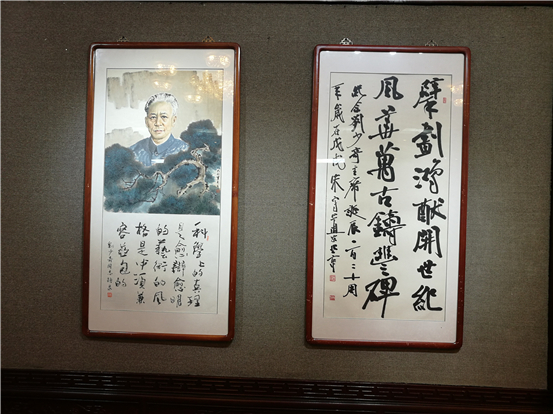 科學上的真理
是愈辯愈明
的藝術的風
格是必須兼
容並包的
擘劃鴻猷開世紀
風華萬古鑄豐碑
紀念劉少奇主席誕辰一百二十周
年歲在戊戌